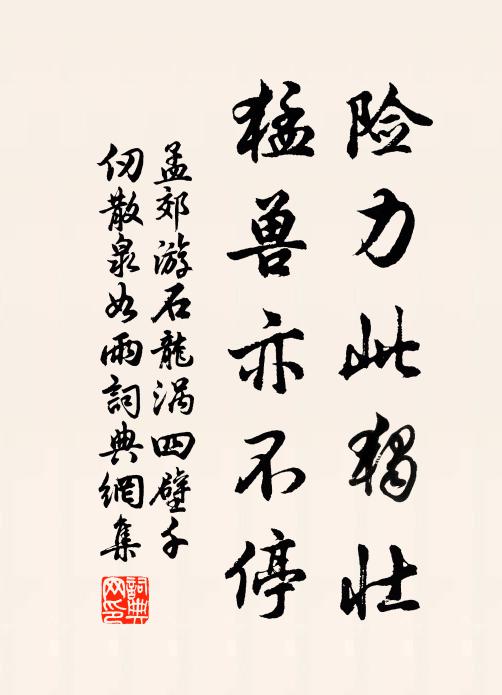 险力此獨壮
猛兽亦不停
孟郊游石龍涡四壁千
仞散泉如雨詞典網集
詞典
网印